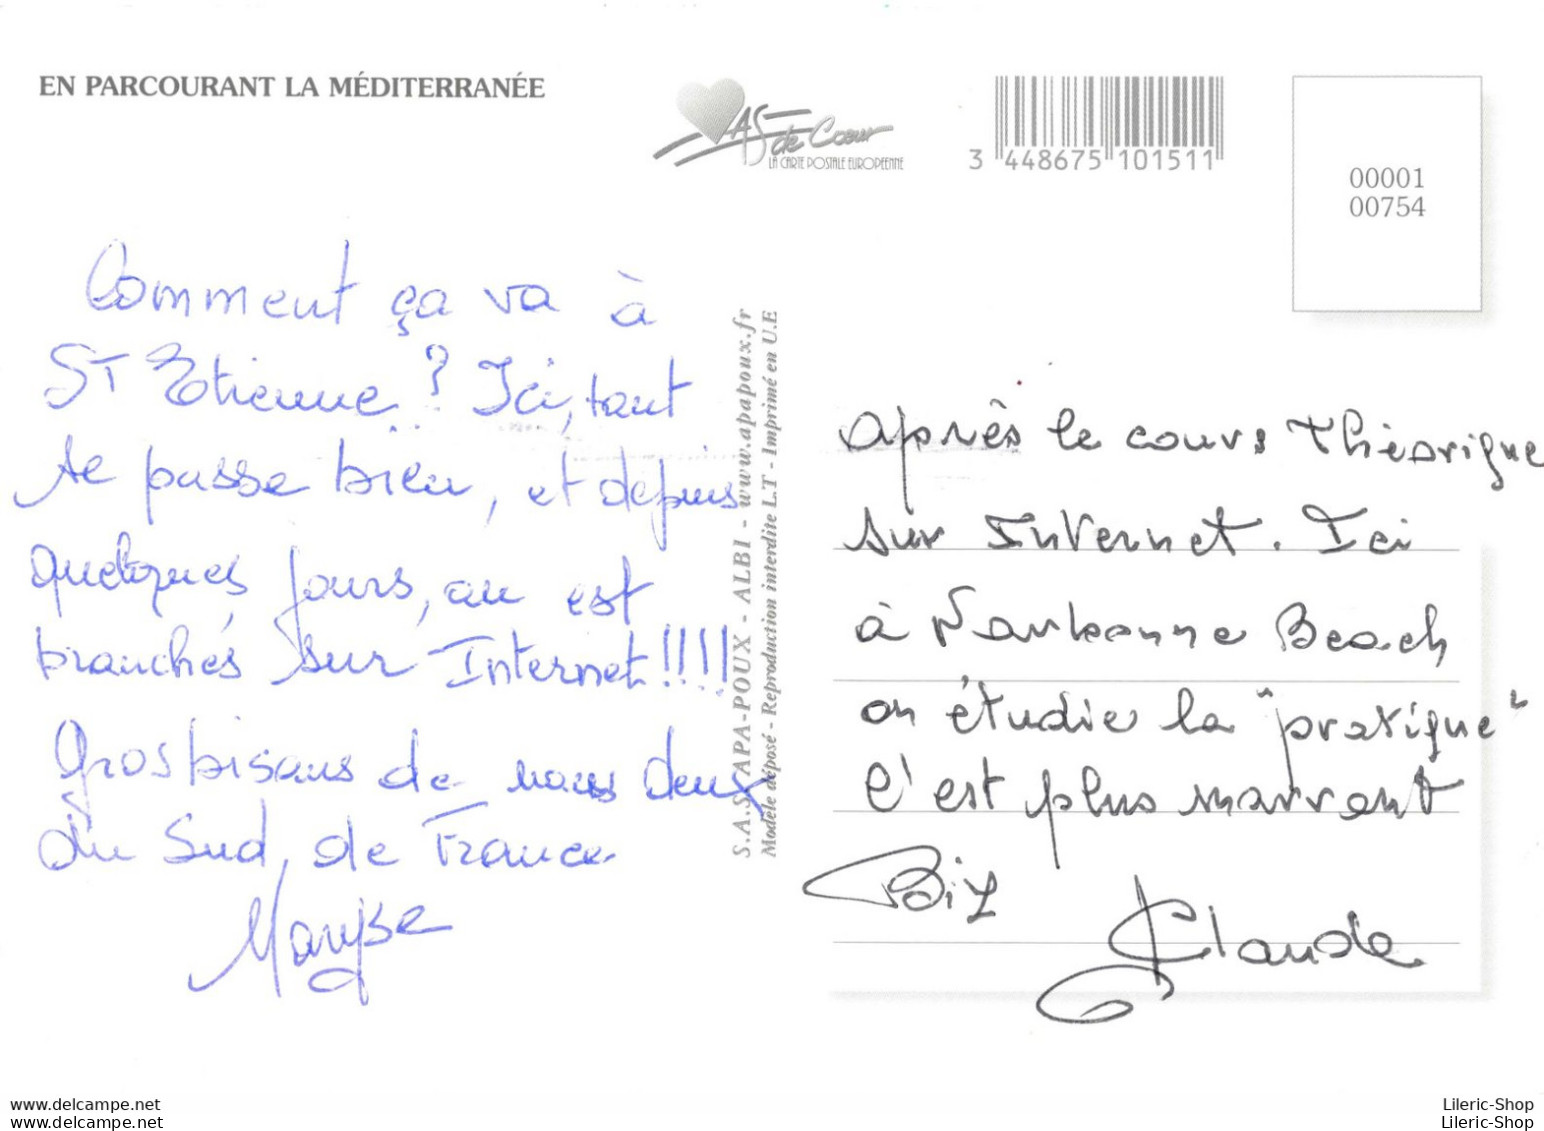 EN PARCOURANT LA MÉDITERRANÉE
AS de Cœur
LA CARTE POSTALE EUROPÉENNE
3 448675 101511
00001
00754
Comment ça va à
ST Etienne ? Ici, tout
se passe bien, et depuis
quelques jours, on est
branchés sur Internet !!!!
Gros bisous de nous deux
du Sud, de France
Maryse
S.A.S. APA-POUX - ALBI - www.apapoux.fr
Modèle déposé - Reproduction interdite L.T - Imprimé en U.E
après le cours théorique
sur Internet. Ici
à Narbonne Beach
on étudie la "pratique"
c'est plus marrant
Biz
Claude
delcampe.net
delcampe.net
Lileric-Shop
Lileric-Shop